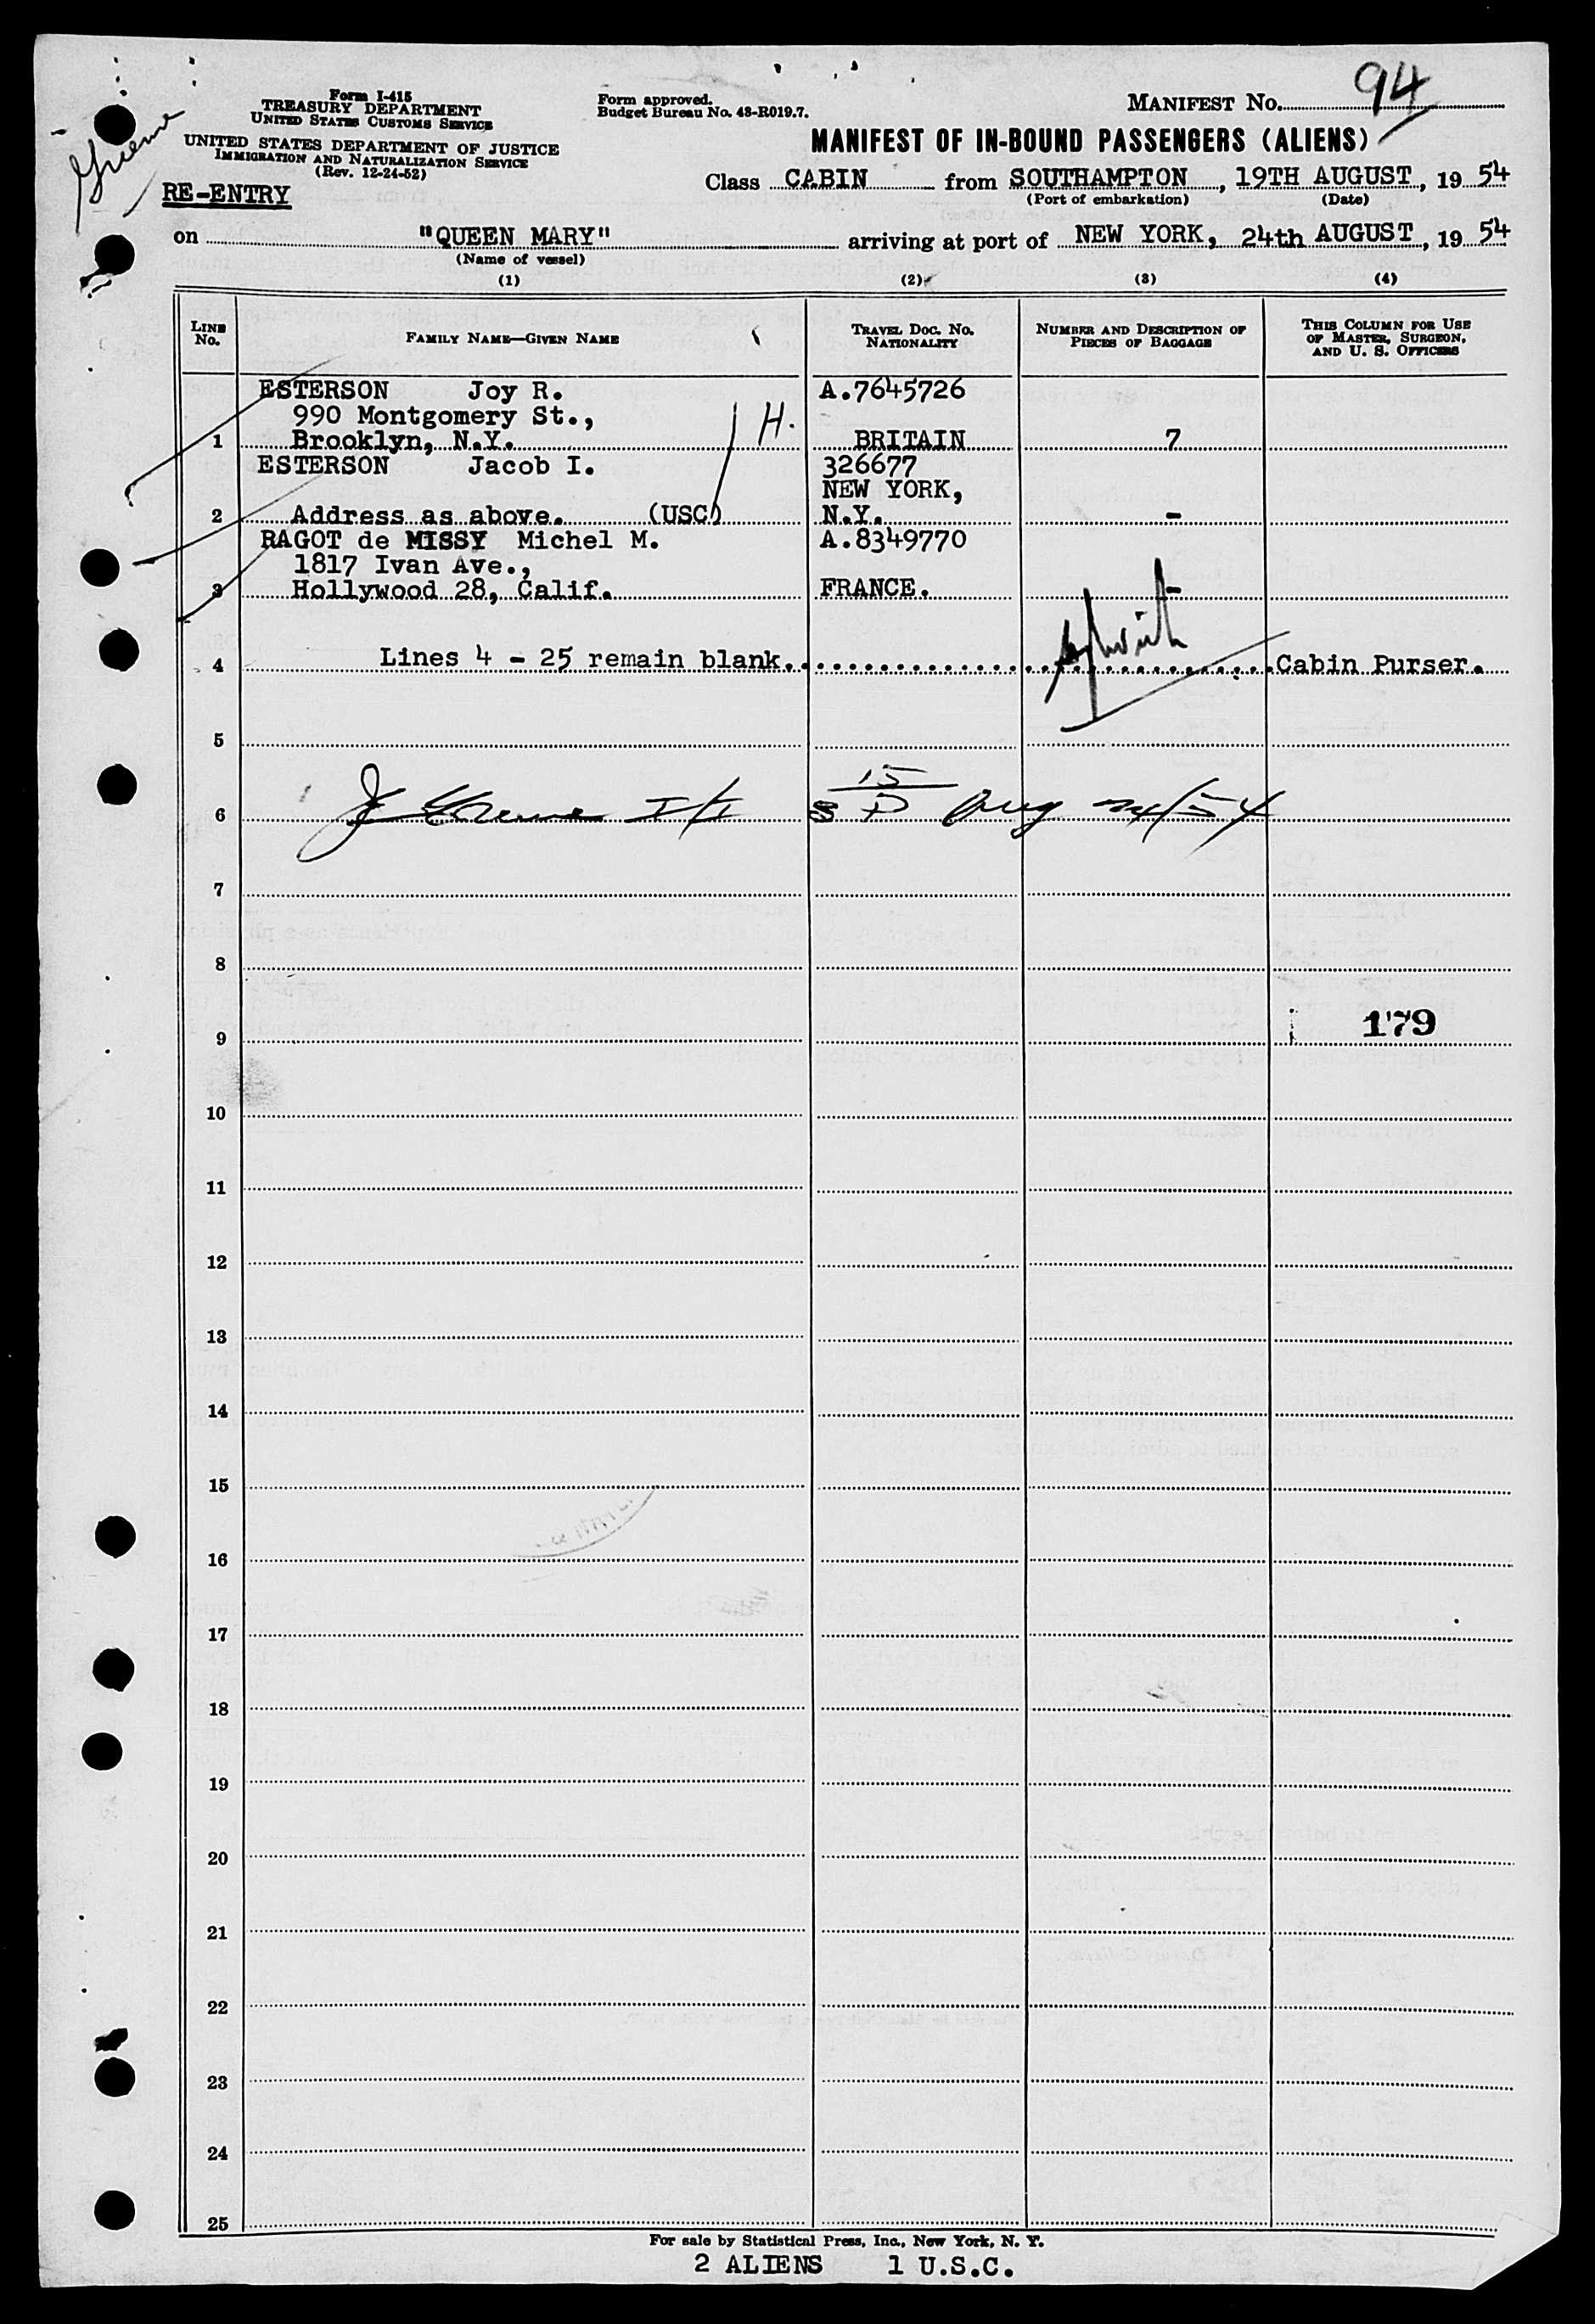 Greene
Form I-415
TREASURY DEPARTMENT
UNITED STATES CUSTOMS SERVICE
UNITED STATES DEPARTMENT OF JUSTICE
IMMIGRATION AND NATURALIZATION SERVICE
(Rev. 12-24-52)
RE-ENTRY
Form approved.
Budget Bureau No. 43-R019.7.
MANIFEST NO. 94
MANIFEST OF IN-BOUND PASSENGERS (ALIENS)
Class CABIN from SOUTHAMPTON, 19TH AUGUST, 19 54
(Port of embarkation) (Date)
on "QUEEN MARY" arriving at port of NEW YORK, 24th AUGUST, 19 54
(Name of vessel)
(1) (2) (3) (4)
LINE No. FAMILY NAME—GIVEN NAME TRAVEL DOC. NO. NATIONALITY NUMBER AND DESCRIPTION OF PIECES OF BAGGAGE THIS COLUMN FOR USE OF MASTER, SURGEON, AND U. S. OFFICERS
ESTERSON Joy R. A.7645726
990 Montgomery St., H.
1 Brooklyn, N.Y. BRITAIN 7
ESTERSON Jacob I. 326677
NEW YORK,
2 Address as above. (USC) N.Y. -
RAGOT de MISSY Michel M. A.8349770
1817 Ivan Ave.,
3 Hollywood 28, Calif. FRANCE. -
4 Lines 4 - 25 remain blank. Cabin Purser.
5
6 J Greene I/I S 15/D Aug 24/54
7
8
9 179
10
11
12
13
14
15
16
17
18
19
20
21
22
23
24
25
For sale by Statistical Press, Inc., New York, N. Y.
2 ALIENS 1 U.S.C.